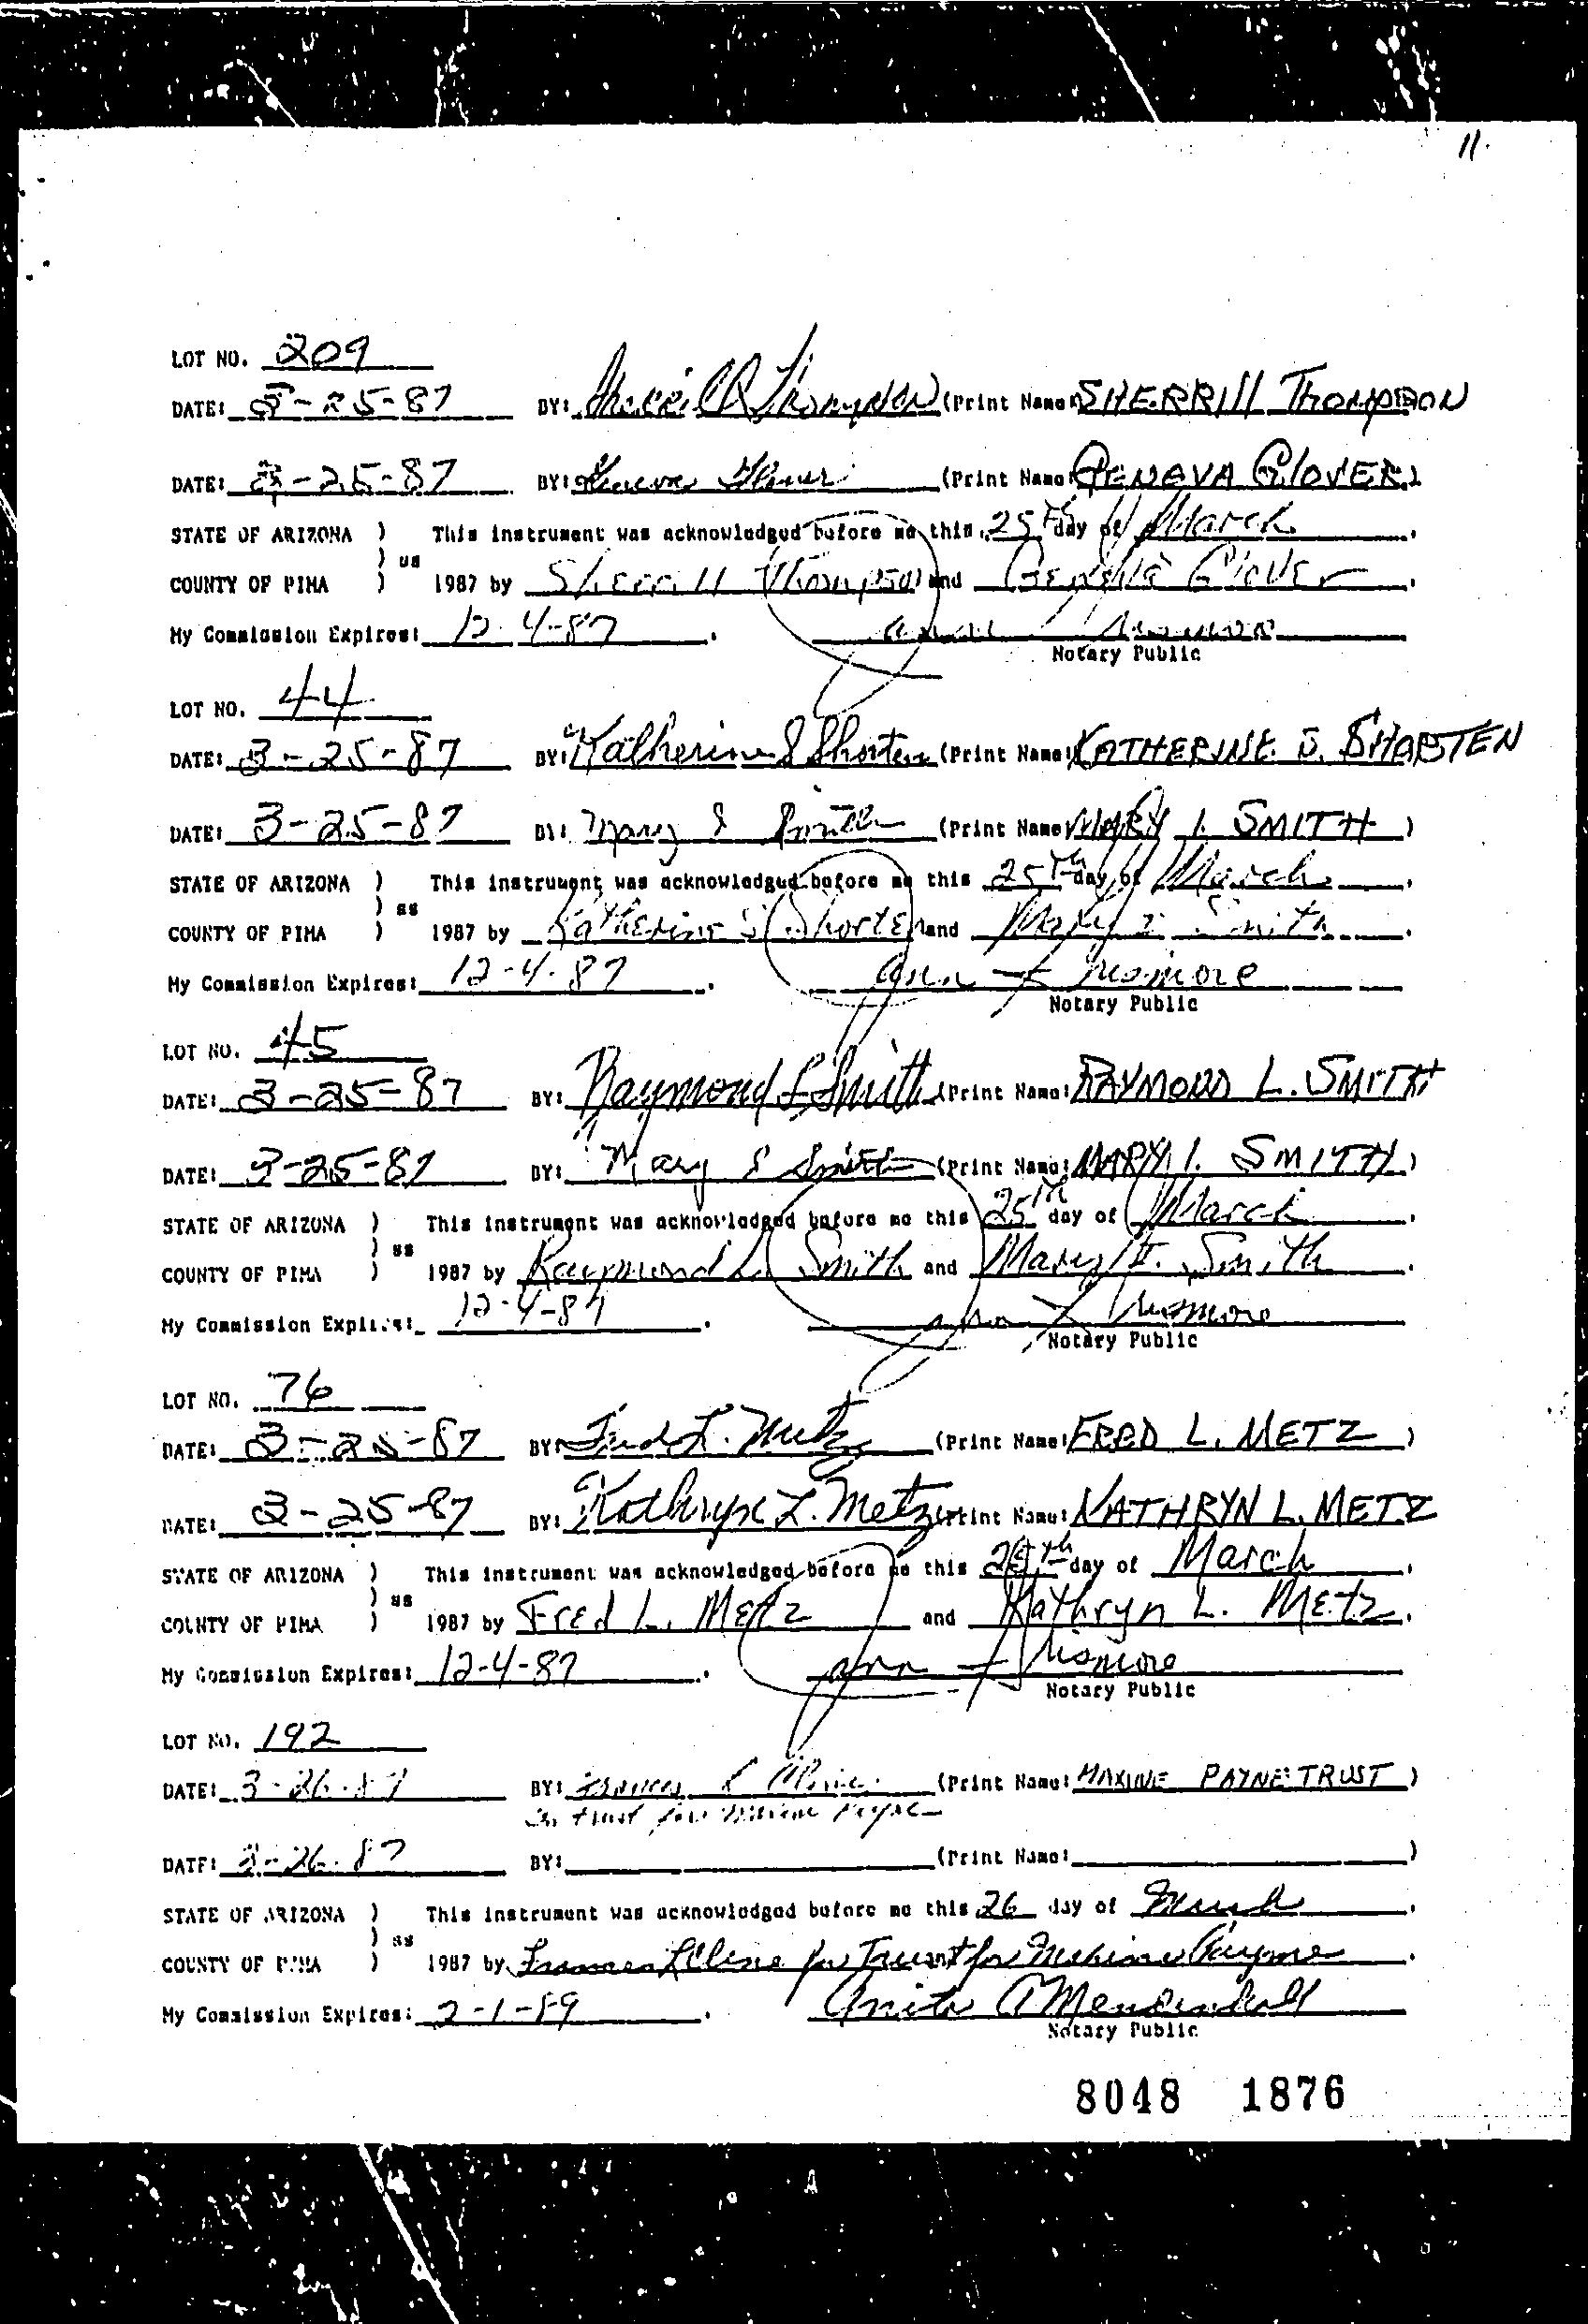 11.
LOT NO. 209
DATE: 3-25-87 BY: Sherrill Thompson (Print Name) SHERRIll THOMPSON
DATE: 3-25-87 BY: Geneva Glover (Print Name) GENEVA GlOVER)
STATE OF ARIZONA ) This instrument was acknowledged before me this 25th day of March.
) ss
COUNTY OF PIMA ) 1987 by Sherrill Thompson and Geneva Glover.
My Commission Expires: 12-4-87. Ann
Notary Public
LOT NO. 44
DATE: 3-25-87 BY: Katherine S Shorten (Print Name: KATHERINE S. SHORTEN
DATE: 3-25-87 BY: Mary I Smith (Print Name MARY I. SMITH)
STATE OF ARIZONA ) This instrument was acknowledged before me this 25th day of March.
) ss
COUNTY OF PIMA ) 1987 by Katherine S Shorten and Mary I Smith.
My Commission Expires: 12-4-87. Ann
Notary Public
LOT NO. 45
DATE: 3-25-87 BY: Raymond L Smith (Print Name: RAYMOND L. SMITH
DATE: 3-25-87 BY: Mary I Smith (Print Name: MARY I. SMITH)
STATE OF ARIZONA ) This instrument was acknowledged before me this 25th day of March.
) ss
COUNTY OF PIMA ) 1987 by Raymond L Smith and Mary I. Smith.
My Commission Expires: 12-4-87. Ann
Notary Public
LOT NO. 76
DATE: 3-25-87 BY: Fred L. Metz (Print Name: FRED L. METZ)
DATE: 3-25-87 BY: Kathryn L. Metz (Print Name: KATHRYN L. METZ
STATE OF ARIZONA ) This instrument was acknowledged before me this 25th day of March.
) ss
COUNTY OF PIMA ) 1987 by Fred L. Metz and Kathryn L. Metz.
My Commission Expires: 12-4-87. Ann
Notary Public
LOT NO. 192
DATE: 3-26-87 BY: Frances L Cline (Print Name: MAXINE PAYNE TRUST)
In trust for Maxine Payne
DATE: 3-26-87 BY: (Print Name: )
STATE OF ARIZONA ) This instrument was acknowledged before me this 26 day of March.
) ss
COUNTY OF PIMA ) 1987 by Frances L Cline for Trust for Maxine Payne.
My Commission Expires: 2-1-89. Anita A Mendenhall
Notary Public
8048 1876